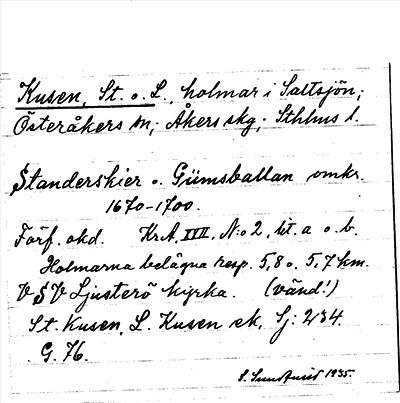 Kusen, St. o. L., holmar i Saltsjön;
Österåkers sn; Åkers skg; Sthlms l.
Standerskier o. Gümsballan omkr.
1670-1700.
Förf. okd. Kr.A. XVII, N:o 2, lit. a o. b.
Holmarna belägna resp. 5,8 o. 5,7 km.
V S V Ljusterö kyrka. (vänd!)
St. Kusen, L. Kusen ek, Sj: 234.
G. 76.
1935.